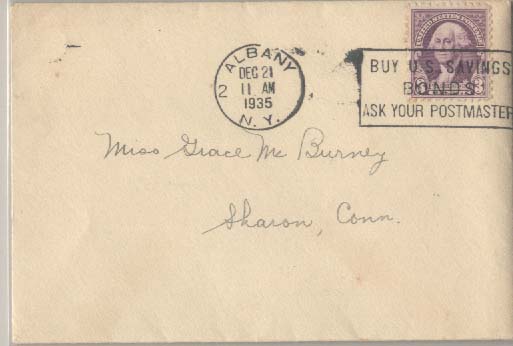 ALBANY
DEC 21
2 11 AM
1935
N. Y.
UNITED STATES POSTAGE
BUY U.S. SAVINGS
BONDS
ASK YOUR POSTMASTER
Miss Grace Mc Burney
Sharon, Conn.